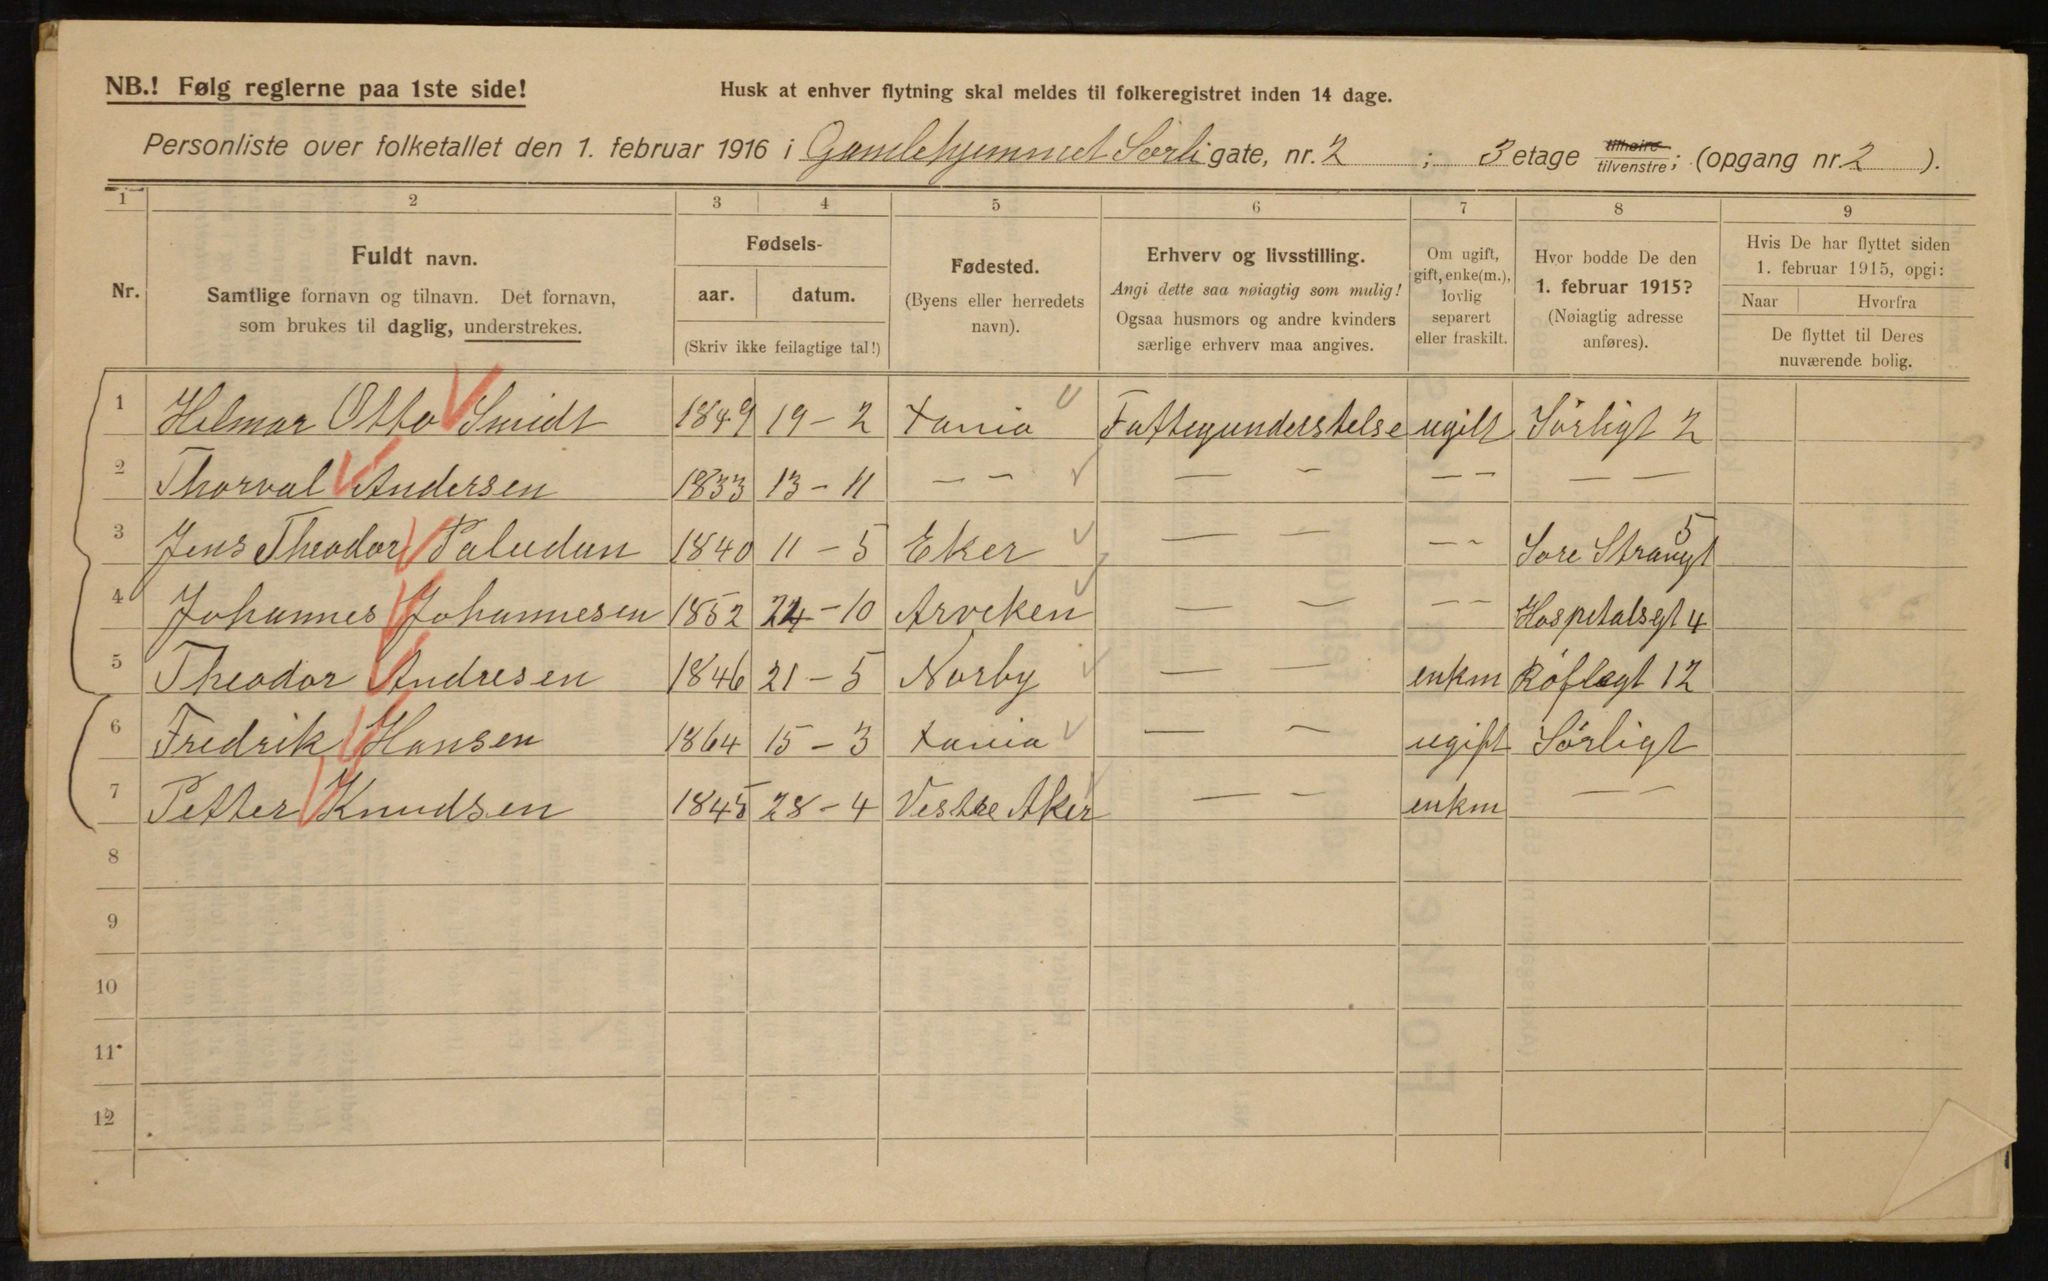 NB.! Følg reglerne paa 1ste side!
Husk at enhver flytning skal meldes til folkeregistret inden 14 dage.
Personliste over folketallet den 1. februar 1916 i Gamlehjemmet Sørli gate, nr. 2 ; 3 etage tilhøire tilvenstre; (opgang nr. 2 ).
1 2 3 4 5 6 7 8 9
Nr.
Fuldt navn.
Samtlige fornavn og tilnavn. Det fornavn,
som brukes til daglig, understrekes.
Fødsels-
aar. datum.
(Skriv ikke feilagtige tal!)
Fødested.
(Byens eller herredets
navn).
Erhverv og livsstilling.
Angi dette saa nøiagtig som mulig!
Ogsaa husmors og andre kvinders
særlige erhverv maa angives.
Om ugift,
gift, enke(m.),
lovlig
separert
eller fraskilt.
Hvor bodde De den
1. februar 1915?
(Nøiagtig adresse
anføres).
Hvis De har flyttet siden
1. februar 1915, opgi:
Naar Hvorfra
De flyttet til Deres
nuværende bolig.
1 Helmar Otto Smidt 1849 19 - 2 Xania Fattigunderstelse ugift Sørligt 2
2 Thorval Andersen 1833 13 - 11 — — — — — — — —
3 Jens Theodor Paludan 1840 11 - 5 Eker — — — — Sore Strangt 5
4 Johannes Johannesen 1852 24 - 10 Arveken — — — — Hospetalsgt 4
5 Theodor Andresen 1846 21 - 5 Norby — — enkm Røflegt 12
6 Fredrik Hansen 1864 15 - 3 Xania — — ugift Sørligt
7 Petter Knudsen 1845 28 - 4 Vestre Aker — — enkm — —
8
9
10
11
12